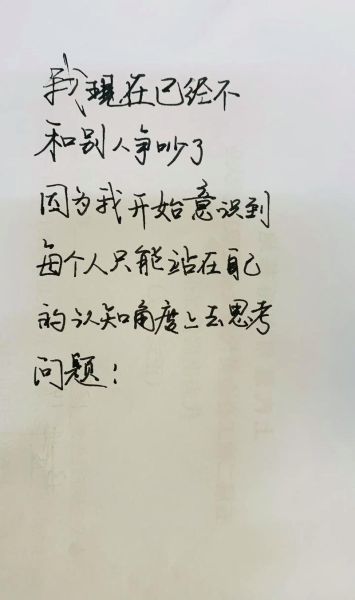 我现在已经不
和别人争吵了
因为我开始意识到
每个人只能站在自己
的认知角度上去思考
问题！